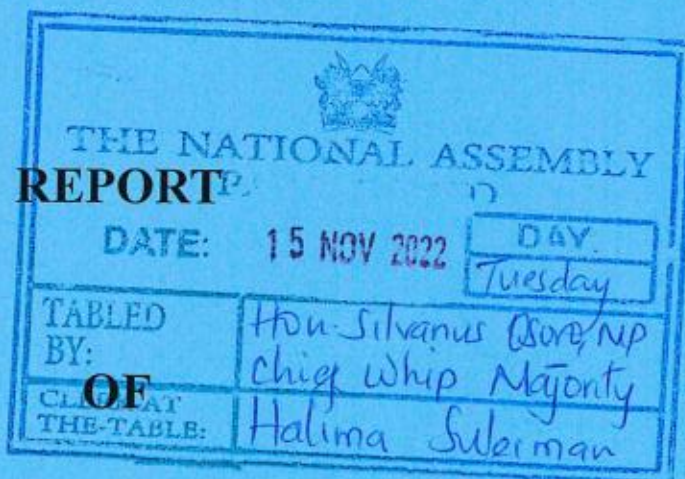 THE NATIONAL ASSEMBLY
REPORT
DATE: 15 NOV 2022 DAY.
Tuesday
TABLED BY: Hon. Silvanus Osoro, MP
Chief Whip Majority
OF
THE-TABLE: Halima Suleiman